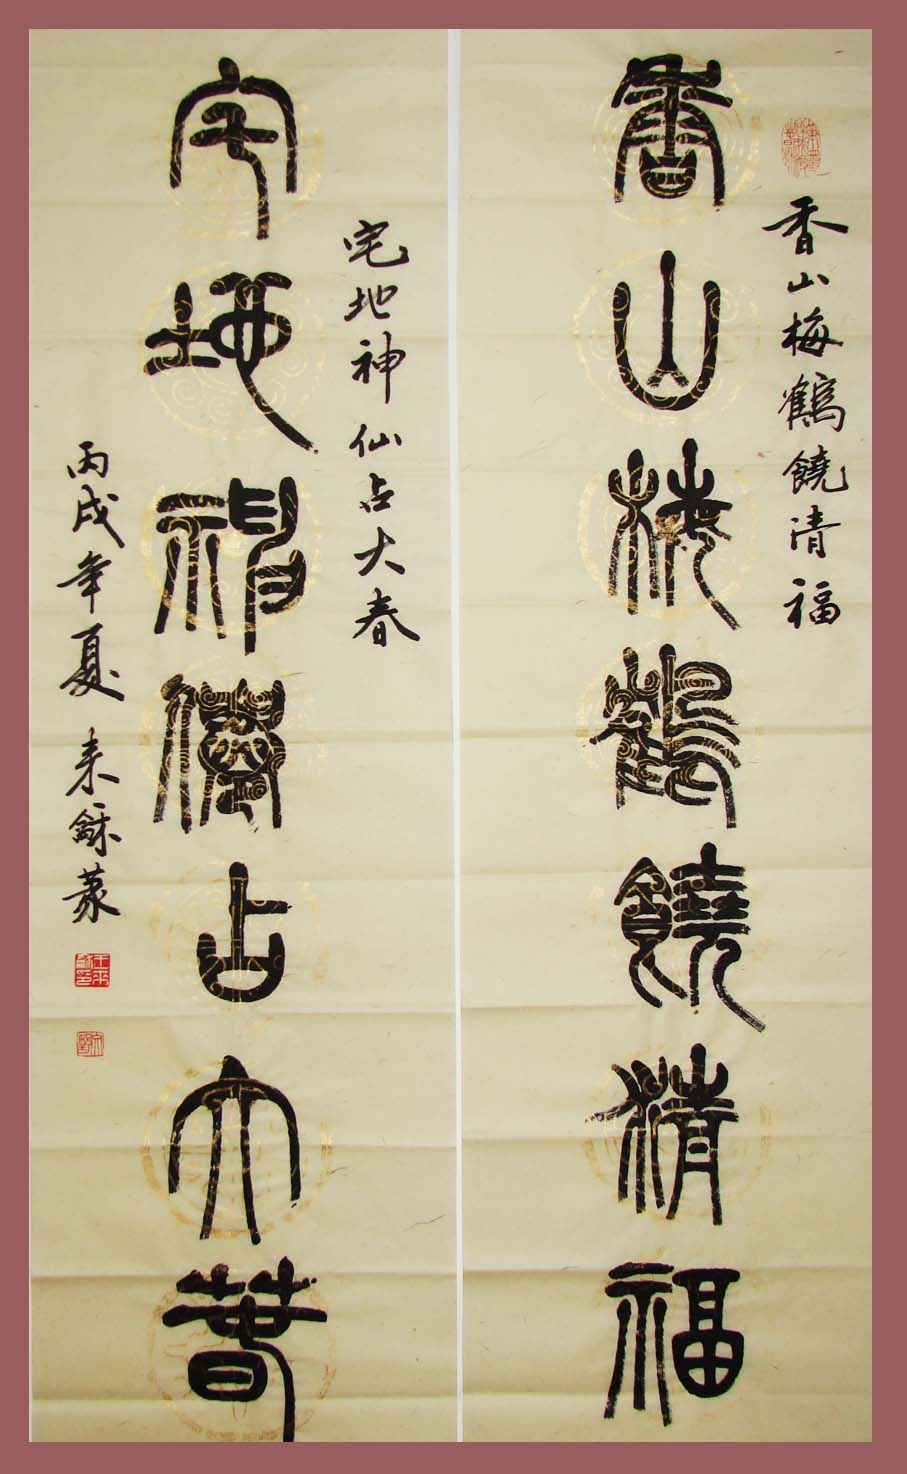 香山梅鶴饒清福
香山梅鶴饒清福
宅地神仙占大春
宅地神僊占大春
丙戌年夏 来穌篆